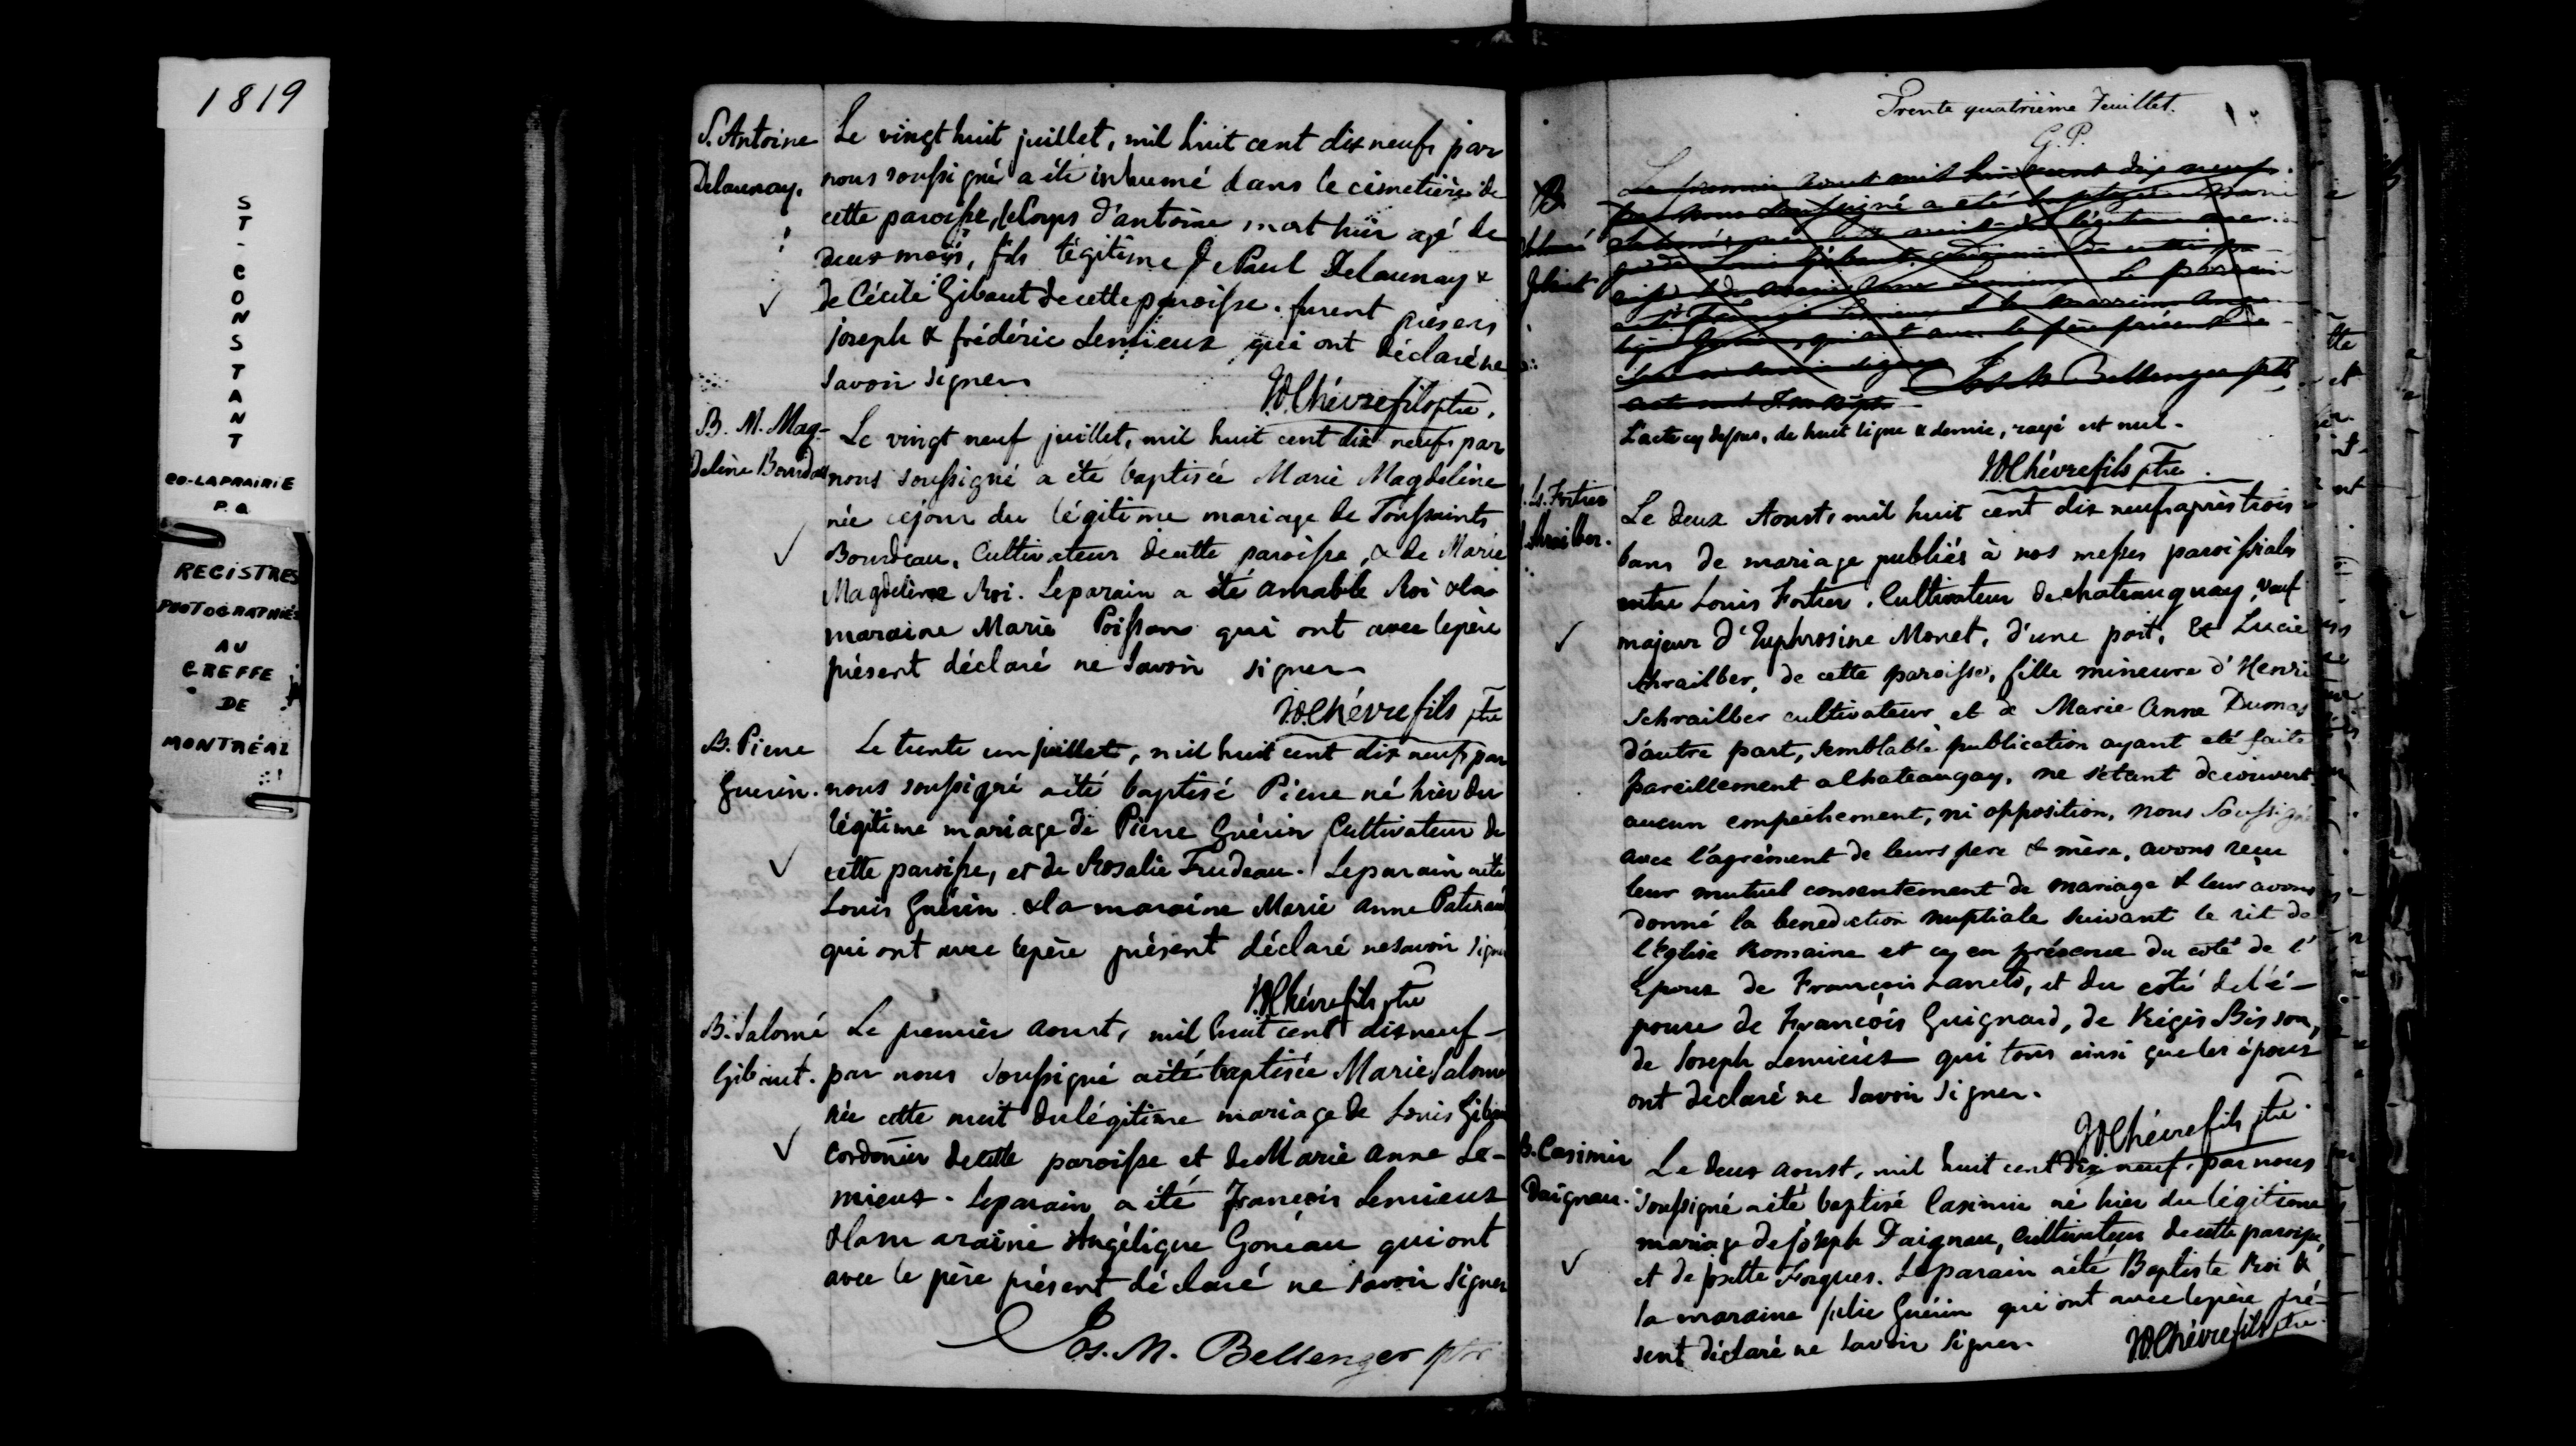 1819
ST-CONSTANT
CO-LAPRAIRIE
P.Q
REGISTRES
PHOTOGRAPHIÉS
AU
GREFFE
DE
MONTRÉAL
S. Antoine
Delaunay.
Le vingt huit juillet, mil huit cent dix neuf, par
nous soussigné a été inhumé dans le cimetière de
cette paroisse, le Corps d'antoine mort hier agé de
deux mois, fils légitime de Paul Delaunay &
de Cécile Gibaut de cette paroisse. furent présens
joseph & frédéric Lemieux qui ont déclaré ne
savoir signer
Chèvrefils ptre.
B. M. Mag-
deleine Bourdeau
Le vingt neuf juillet, mil huit cent dix neuf, par
nous soussigné a été baptisée Marie Magdeleine
née cejour du légitime mariage de Toussaints
Bourdeau, Cultivateur de cette paroisse, & de Marie
Magdeleine Roi. Le parain a été amable Roi & la
maraine Marie Poissons qui ont avec lepère
présent déclaré ne savoir signer
Chèvrefils ptre
B. Pierre
Guerin.
Le trente un juillet, mil huit cent dix neuf, par
nous soussigné a été baptisé Pierre né hier du
légitime mariage de Pierre Guérin Cultivateur de
cette paroisse, et de Rosalie Trudeau. Le parain a été
Louis Guérin & la maraine Marie anne
qui ont avec lepère présent déclaré ne savoir signer
Chèvrefils ptre
B. Salomé
Gibaut.
Le premier aoust, mil huit cent dix neuf-
par nous soussigné a été baptisée Marie Salomé
née cette nuit du légitime mariage de Louis Gibaut
Cordonier de cette paroisse et de Marie anne Le-
mieux. Le parain a été François Lemieux
& la maraine Angélique Goneau qui ont
avec le père présent déclaré ne savoir signer
Jos. M. Bellenger ptre
Trente quatrième Feuillet.
G. P.
B.
Salomé
Gibaut
Le premier Aoust mil huit cent dix neuf
par nous soussigné a été baptizée Marie
Jos. M. Bellenger ptre
L'acte cy dessus, de huit ligne & demie, rayé est nul.
Chèvrefils ptre.
Ls. Fortier
Schrailber.
Le deux Aoust, mil huit cent dix neuf, après trois
bans de mariage publiés à nos messes paroissiales
entre Louis Fortier, Cultivateur de chateauguay, veuf
majeur d'Euphrosine Monet, d'une part, & Lucie
Schrailber, de cette paroisse, fille mineure d'Henri
Schrailber cultivateur et de Marie Anne Dumas
d'autre part, semblable publication ayant eté faite
pareillement a Chateaugay, ne s'étant découvert
aucun empêchement, ni opposition, nous Soussigné
avec l'agrément de leurs pere & mère, avons reçu
leur mutuel consentement de mariage & leur avons
donné la benediction nuptiale suivant le rit de
l'Eglise Romaine et cy en présence du coté de l'
Epoux de François Lanctó, et du coté de l'é-
pouse de François Guignard, de Régis Bisson,
de Joseph Lemieux qui tous ainsi que les époux
ont déclaré ne savoir signer.
Chèvrefils ptre.
B. Casimir
Daignau.
Le deux aoust, mil huit cent dix neuf, par nous
soussigné a été baptisé Casimir né hier du légitime
mariage de Joseph Daignau, Cultivateur de cette paroisse,
et de josette Forgues. Le parain a été Baptiste Roi &
la maraine julie Guérin qui ont avec lepère pré-
sent déclaré ne savoir signer.
Chèvrefils ptre.